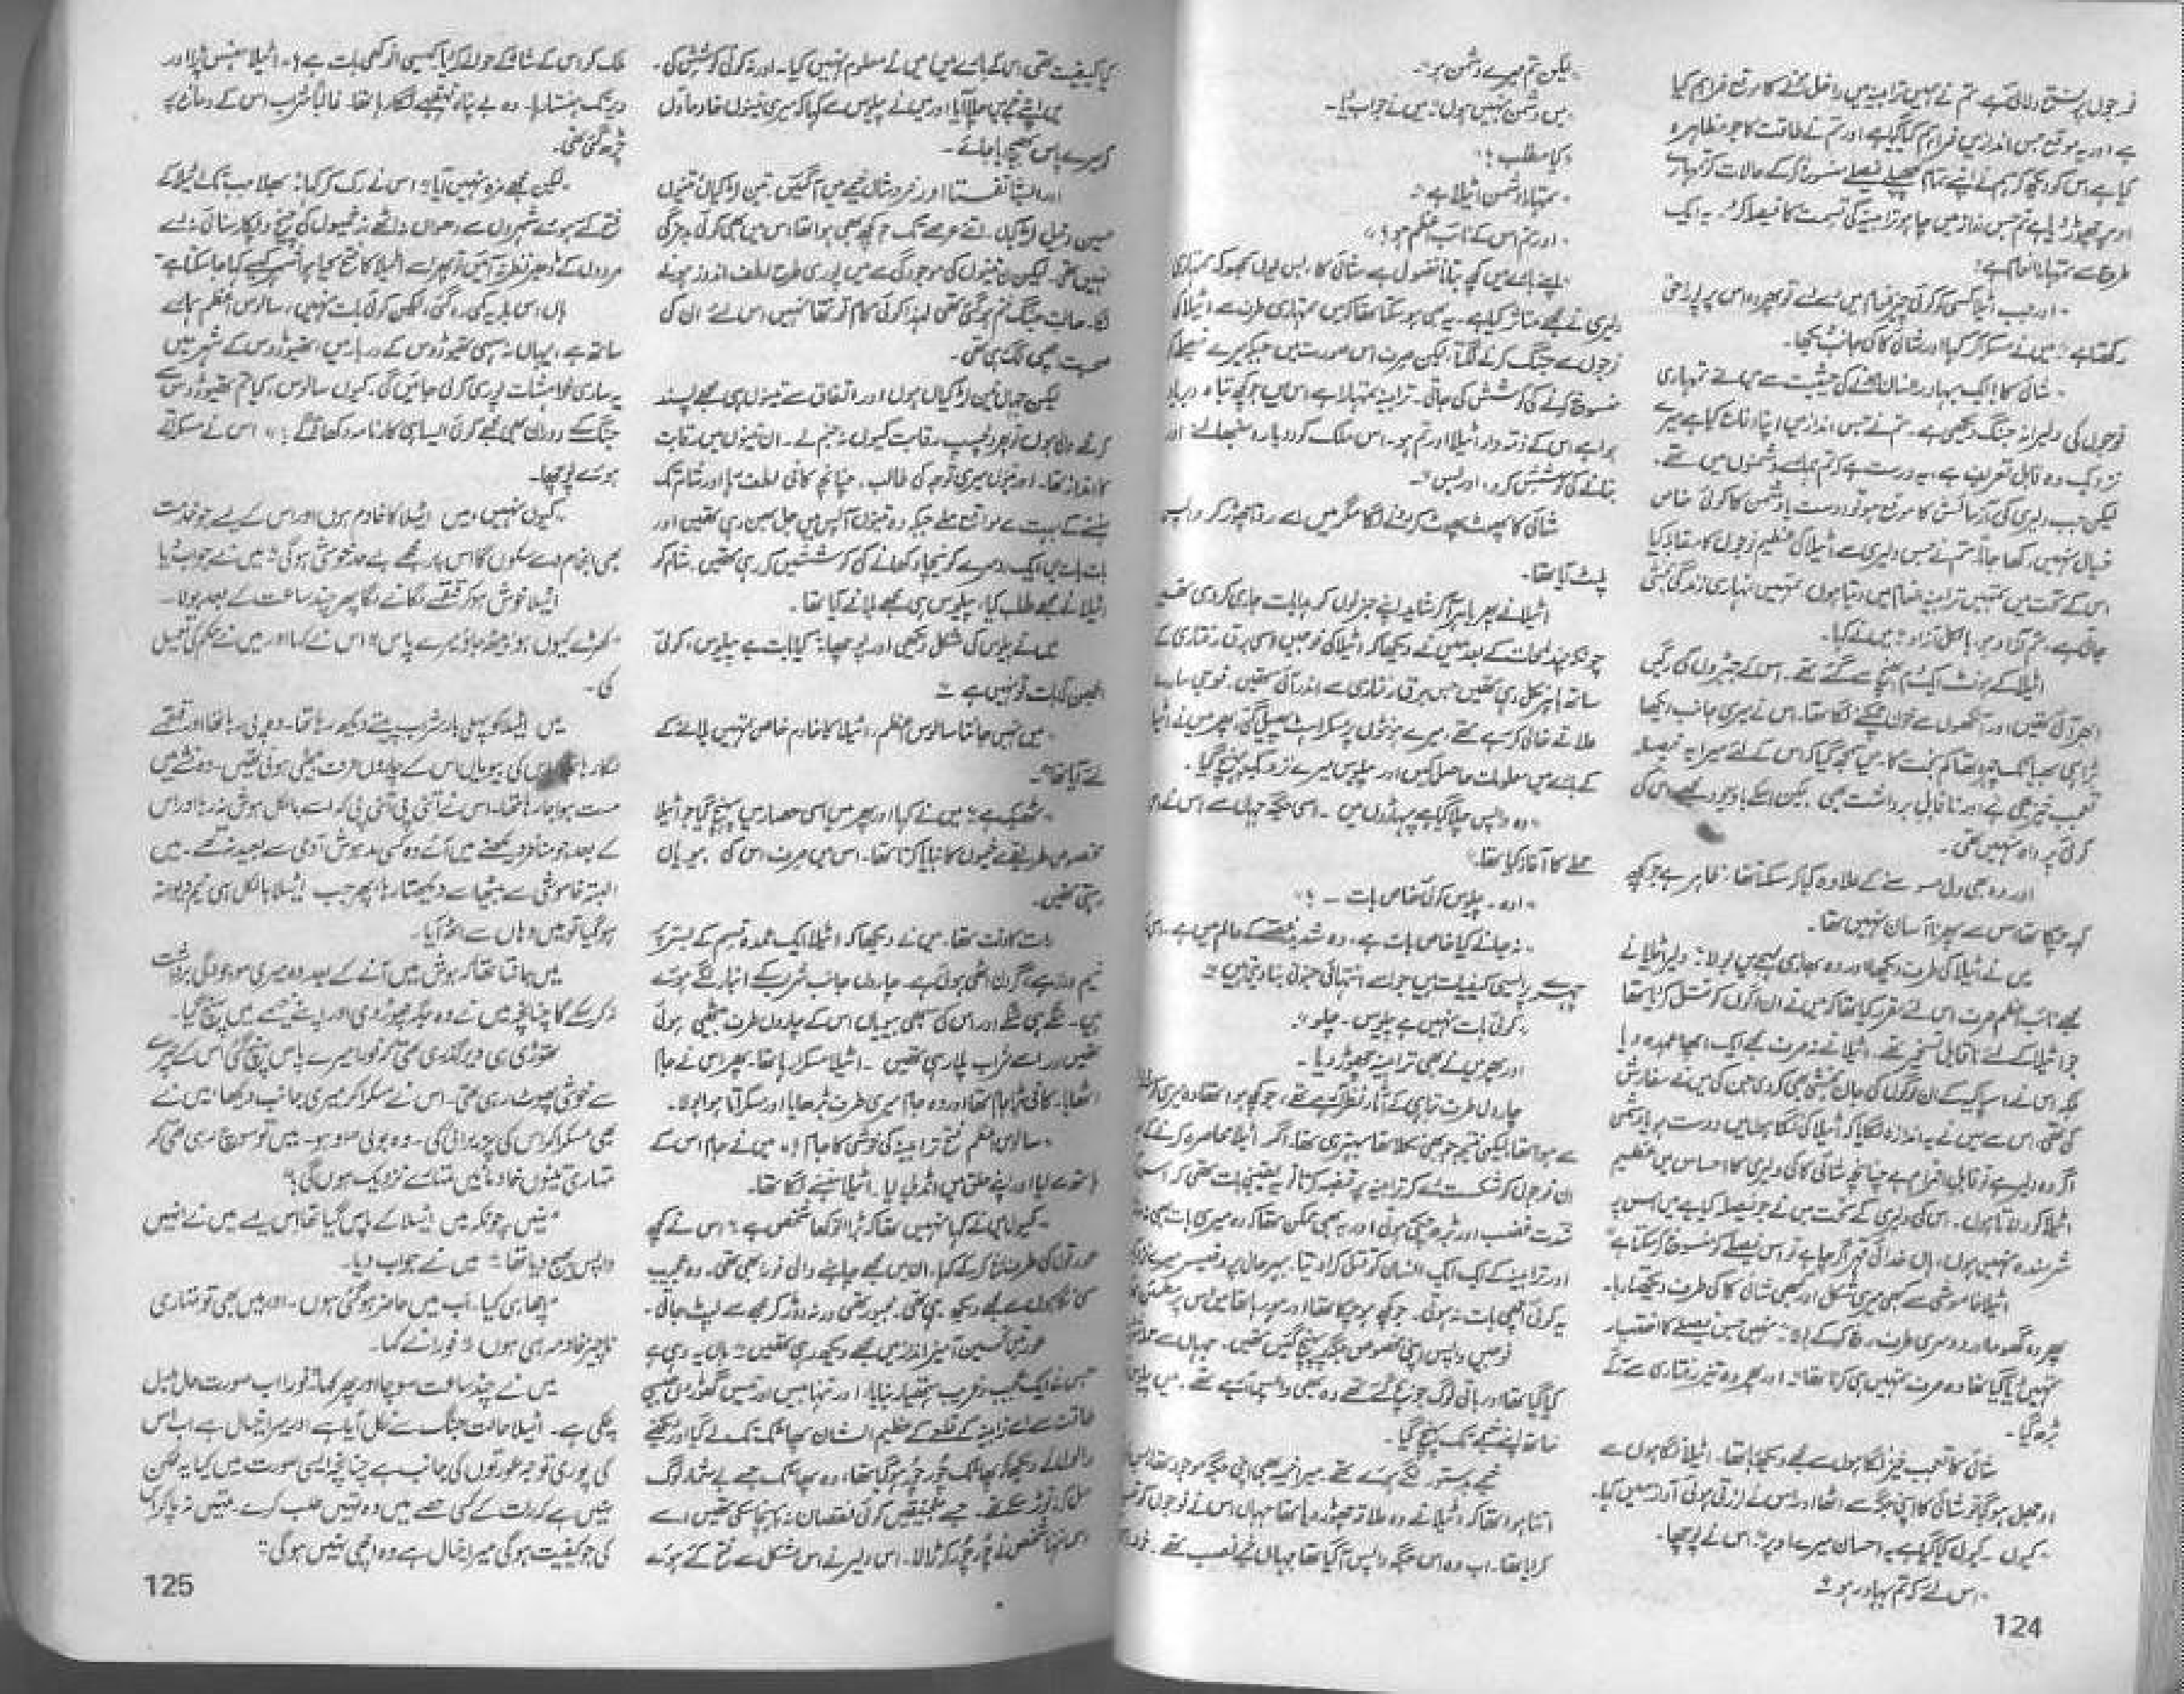 فوجوں پر سبقت دلائی ہے تم نے ہمیں ترابینہ میں داخل ہونے کا موقع فراہم کیا
ہے اور یہ موقع جس انداز میں فراہم کیا گیا ہے اور تم نے طاقت کا جو مظاہرہ
کیا ہے اس کو دیکھ کر ہم نے اپنے تمام پچھلے فیصلے منسوخ کر کے حالات کو تمہارے
اوپر چھوڑ دیا ہے تم جس انداز میں چاہو ترابینہ کی قسمت کا فیصلہ کرو۔ یہ ایک
طرح سے تمہارا انعام ہے؛
۔ اور جب اٹیلا کسی کو کوئی چیز انعام میں دے دے تو پھر وہ اس پر
رکھتا ہے؛ میں نے مسکرا کر کہا اور شائی کا کی جانب
۔ شائی کا! ایک بہادر انسان ہونے کی حیثیت سے ہم نے تمہاری
فوجوں کی دلیرانہ جنگ دیکھی ہے۔ تم نے جس انداز میں اپنا دفاع کیا ہے میرے
نزدیک وہ قابل تعریف ہے، یہ درست ہے کہ تم ہمارے دشمنوں میں تھے،
لیکن جب دلیری کی آزمائش کا موقع ہو تو دوست یا دشمن کا کوئی خاص
خیال نہیں رکھا جاتا تم نے جس دلیری سے اٹیلا کی عظیم فوجوں کا مقابلہ کیا
اس کے تحت میں تمہیں ترابینہ انعام میں دیتا ہوں تمہیں تمہاری زندگی بخشی
جاتی ہے، تم آزاد ہو، بالکل آزاد؛ میں نے کہا۔
اٹیلا کے ہونٹ ایک دم بھنچ سے گئے تھے۔ اس کے جبڑوں کی رگیں
ابھر آئی تھیں اور آنکھوں سے خون ٹپکنے لگا تھا۔ اس نے میری جانب دیکھا
بڑا ہی بھیانک چہرہ تھا کم بخت کا، میں سمجھ گیا کہ اس کے لئے میرا یہ فیصلہ
تعجب خیز بھی ہے اور ناقابل برداشت بھی، لیکن اسکے باوجود مجھے اس کی
کوئی پرواہ نہیں تھی۔
اور وہ بھی دل مسوسنے کے علاوہ کیا کر سکتا تھا، ظاہر ہے جو کچھ
کہہ چکا تھا اس سے پھرنا آسان نہیں تھا۔
میں نے اٹیلا کی طرف دیکھا اور وہ بھاری لہجے میں بولا؛ دلیر اٹیلا نے
مجھے نائب اعظم صرف اس لئے مقرر کیا تھا کہ میں نے ان لوگوں کو قتل کرنا تھا
جو اٹیلا کے لئے ناقابل تسخیر تھے، اٹیلا نے نہ صرف مجھے ایک اچھا عہدہ دیا
بلکہ اس نے اسپاگیہ کے ان لوگوں کی جان بخشی بھی کر دی جن کی میں نے سفارش
کی تھی، اس سے میں نے یہ اندازہ لگایا کہ اٹیلا کی نگاہ میں دوست ہو یا دشمن
اگر وہ دلیر ہے تو قابل احترام ہے چنانچہ شائی کا کی دلیری کا احساس میں عظیم
اٹیلا کو دلاتا ہوں۔ اس کی دلیری کے تحت میں نے جو فیصلہ کیا ہے میں اس پر
شرمندہ نہیں ہوں، ہاں خدائی قہر اگر چاہے تو اس فیصلے کو منسوخ کر سکتا ہے"
اٹیلا خاموشی سے کبھی میری شکل اور کبھی شائی کا کی طرف دیکھتا رہا۔
پھر وہ گھوما اور دوسری طرف رخ کر کے بولا: تمہیں جس فیصلے کا اختیار
تمہیں دیا گیا تھا وہ صرف تمہیں ہی کرنا تھا؛ اور پھر وہ تیز رفتاری سے آگے
بڑھ گیا۔
شائی کا تعجب خیز نگاہوں سے مجھے دیکھ رہا تھا۔ اٹیلا نگاہوں سے
اوجھل ہو گیا تو شائی کا اپنی جگہ سے اٹھا اور اس نے لرزتی ہوئی آواز میں کہا۔
۔ کیوں ۔ کیوں کیا گیا ہے یہ احسان میرے اوپر؛ اس نے پوچھا۔
۔ اس لئے کہ تم بہادر ہو؛
۔ لیکن تم میرے دشمن ہو؛۔
۔ میں دشمن نہیں ہوں؛ میں نے جواب دیا۔
۔ کیا مطلب؟
۔ تمہارا دشمن اٹیلا ہے؛
۔ اور تم اس کے نائب اعظم ہو؟
۔ اپنے بارے میں کچھ بتانا فضول ہے شائی کا، بس یوں سمجھو کہ تمہاری
دلیری نے مجھے متاثر کیا ہے۔ یہ بھی ہو سکتا تھا کہ میں تمہاری طرف سے اٹیلا کی
فوجوں سے جنگ کرنے لگتا، لیکن صرف اس صورت میں جبکہ میرے فیصلے کو
منسوخ کرنے کی کوشش کی جاتی۔ ترابینہ تمہارا ہے اس میں جو کچھ تباہ و برباد
ہوا ہے اس کے ذمہ دار اٹیلا اور تم ہو۔ اس ملک کو دوبارہ سنبھالنے اور
بنانے کی کوشش کرو، اور بس؛۔
شائی کا پھوٹ پھوٹ کر رونے لگا مگر میں اسے روتا چھوڑ کر واپس
پلٹ آیا تھا۔
اٹیلا نے پھر باہر آ کر شاید اپنے جنرلوں کو ہدایات جاری کر دی تھیں
چونکہ چند لمحات کے بعد میں نے دیکھا کہ اٹیلا کی فوجیں اسی برق رفتاری کے
ساتھ باہر نکل رہی تھیں جس برق رفتاری سے اندر آئی تھیں۔ فوجی سارے
علاقے خالی کر رہے تھے، میرے ہونٹوں پر مسکراہٹ پھیل گئی، پھر میں نے اٹیلا
کے بارے میں معلومات حاصل کیں اور پیلوس میرے نزدیک پہنچ گیا۔
۔ وہ واپس چلا گیا ہے پہاڑوں میں ۔ اسی جگہ جہاں سے اس نے
حملے کا آغاز کیا تھا۔
۔ اوہ ۔ پیلوس کوئی خاص بات ۔ ؟
۔ نہ جانے کیا خاص بات ہے، وہ شدید غصے کے عالم میں ہے،
چہرے پر ایسی کیفیات ہیں جو اسے انتہائی جنونی بنا دیتی ہیں؛
۔ کوئی بات نہیں ہے پیلوس ۔ چلو؛
اور پھر میں نے بھی ترابینہ چھوڑ دیا۔
چاروں طرف تباہی کے آثار نظر آ رہے تھے، جو کچھ ہوا تھا وہ میری
سے ہوا تھا، لیکن نتیجہ جو بھی نکلا تھا بہتر ہی تھا، اگر اٹیلا محاصرہ کرنے کے
ان فوجوں کو شکست دے کر ترابینہ پر قبضہ کرتا تو یہ یقینی بات تھی کہ
قدرت غضب اور بڑھ چکی ہوتی اور یہ بھی ممکن تھا کہ وہ میری بات بھی نہ
اور ترابینہ کے ایک ایک انسان کو قتل کرا دیتا، بہرحال پروفیسر
یہ کوئی اچھی بات نہ ہوتی۔ جو کچھ ہو چکا تھا اور ہو رہا تھا میں اس پر مطمئن
فوجیں واپس اپنی مخصوص جگہ پہنچ گئیں تھیں۔ جہاں سے
کیا گیا تھا اور باقی لوگ جو زخمی تھے وہ بھی واپس آ رہے تھے۔ میں
اپنے خیمے تک پہنچ گیا۔
خیمے بدستور لگے ہوئے تھے۔ میرا خیمہ بھی اپنی جگہ موجود تھا
اتنا ہوا تھا کہ اٹیلا نے وہ علاقہ چھوڑ دیا تھا جہاں اس نے فوجوں کو
کرایا تھا۔ اب وہ اس جگہ واپس آ گیا تھا جہاں خیمے نصب تھے۔
124
کیا کیفیت تھی اس کے بارے میں، میں نے معلوم نہیں کیا۔ اور نہ کوئی کوشش کی۔
میں اپنے خیمے میں چلا آیا اور میں نے پیلوس سے کہا کہ میری تینوں خادماؤں
کو میرے پاس بھیج دیا جائے۔
اور آ گئیں، تین لڑکیاں تینوں
حسین و جمیل لڑکیاں۔ اتنے عرصے تک جو کچھ بھی ہوا تھا اس میں بھی کوئی بدمزگی
نہیں تھی۔ لیکن ان تینوں کی موجودگی سے میں پوری طرح لطف اندوز ہونے
لگا۔ حالت جنگ ختم ہو گئی تھی لہٰذا کوئی کام تو تھا نہیں اس لئے ان کی
صحبت اچھی لگ رہی تھی۔
لیکن جہاں تین لڑکیاں ہوں اور اتفاق سے تینوں ہی مجھے پسند
کرنے والی ہوں تو پھر دلچسپ رقابت کیوں نہ جنم لے۔ ان تینوں میں رقابت
کا انداز تھا۔ اور تینوں میری توجہ کی طالب، چنانچہ کافی لطف رہا اور شام تک
ہنسنے کے بہت سے مواقع ملے جبکہ وہ تینوں آپس میں جل بھن رہی تھیں اور
بات بات میں ایک دوسرے کو نیچا دکھانے کی کوششیں کر رہی تھیں۔ شام کو
اٹیلا نے مجھے طلب کیا، پیلوس ہی مجھے بلانے آیا تھا۔
میں نے پیلوس کی شکل دیکھی اور پوچھا؛ کیا بات ہے پیلوس، کوئی
الجھن کی بات تو نہیں ہے؛
۔ میں نہیں جانتا سالوس اعظم، اٹیلا کا خادم خاص تمہیں بلانے کے
لئے آیا تھا؛۔
۔ ٹھیک ہے؛ میں نے کہا اور پھر میں اسی حصار میں پہنچ گیا جو اٹیلا
مخصوص طریقے سے خیموں کا بنایا کرتا تھا۔ اس میں صرف اس کی بیویاں
رہتی تھیں۔
رات کا وقت تھا۔ میں نے دیکھا کہ اٹیلا ایک عمدہ قسم کے بستر پر
نیم دراز ہے، گردن اٹھی ہوئی ہے۔ چاروں جانب شراب کے انبار لگے ہوئے
ہیں۔ مٹکے ہی مٹکے اور اس کی سبھی بیویاں اس کے چاروں طرف بیٹھی ہوئی
تھیں اور اسے شراب پلا رہی تھیں ۔ اٹیلا مسکرا رہا تھا۔ پھر اس نے جام
اٹھایا۔ کافی بڑا جام تھا اور وہ جام میری طرف بڑھایا اور مسکراتا ہوا بولا۔
۔ سالوس اعظم فتح ترابینہ کی خوشی کا جام!؛ میں نے جام اس کے
ہاتھ سے لیا اور اپنے حلق میں انڈیل لیا۔ اٹیلا ہنسنے لگا تھا۔
۔ کیوں میں نے کہا نہیں تھا کہ بڑا انوکھا شخص ہے؛ اس نے کچھ
عورتوں کی طرف رخ کر کے کہا، ان میں مجھے چاہنے والی فورا بھی تھی۔ وہ عجیب
سی نگاہوں سے مجھے دیکھ رہی تھی۔ مجبور تھی ورنہ دوڑ کر مجھ سے لپٹ جاتی۔
عورتیں تحسین آمیز انداز میں مجھے دیکھ رہی تھیں؛ ہاں یہ وہی ہے
جس نے ایک عجیب و غریب ہتھیار بنایا، اور تنہا بیس اور تیس گھوڑوں جیسی
طاقت سے اسے ترابینہ کے قلعہ کے عظیم الشان پھاٹک تک لے گیا اور دیکھنے
والوں نے دیکھا کہ پھاٹک چور چور ہو گیا تھا، وہ پھاٹک جسے بے شمار لوگ
مل کر نہ توڑ سکتے۔ جسے منجنیقیں کوئی نقصان نہ پہنچا سکی تھیں اسے
اس تنہا شخص نے چور چور کر ڈالا۔ اس دلیر نے اس مشکل سے فتح کئے ہوئے
ملک کو اس کے شائی کے حوالے کر دیا کیسی انوکھی بات ہے؛۔ اٹیلا ہنس پڑا اور
دیر تک ہنستا رہا۔ وہ بے پناہ قہقہے لگا رہا تھا۔ غالباً شراب اس کے دماغ پر
چڑھ گئی تھی۔
۔ لیکن مجھے مزہ نہیں آیا؛ اس نے رک کر کہا؛ بھلا جب تک اٹیلا کے
فتح کئے ہوئے شہروں سے دھواں نہ اٹھے، زخمیوں کی چیخ و پکار سنائی نہ دے
مردوں کے ڈھیر نظر نہ آئیں تو پھر اسے اٹیلا کا فتح کیا ہوا شہر کیسے کہا جا سکتا ہے"
ہاں اس بار یہ کمی رہ گئی، لیکن کوئی بات نہیں، سالوس اعظم ہمارے
ساتھ ہے، یہاں نہ سہی تھیوڈوس کے دربار میں، تھیوڈوس کے شہر میں
یہ ساری خواہشات پوری کر لی جائیں گی۔ کیوں سالوس، کیا تم تھیوڈوس سے
جنگ کے دوران بھی مجھے کوئی ایسا ہی کارنامہ دکھاؤ گے؟؛ اس نے مسکراتے
ہوئے پوچھا۔
۔ کیوں نہیں، میں اٹیلا کا خادم ہوں اور اس کے لیے جو خدمت
بھی انجام دے سکوں گا اس پر مجھے بے حد خوشی ہوگی؛ میں نے جواب دیا
اٹیلا خوش ہو کر قہقہے لگانے لگا پھر چند ساعت کے بعد بولا۔
۔ کھڑے کیوں ہو، بیٹھ جاؤ میرے پاس؛ اس نے کہا اور میں نے حکم کی تعمیل
کی۔
میں اٹیلا کو پہلی بار شراب پیتے دیکھ رہا تھا۔ وہ پی رہا تھا اور قہقہے
لگا رہا تھا، اس کی بیویاں اس کے چاروں طرف بیٹھی ہوئی تھیں۔ وہ نشے میں
مست ہوا جا رہا تھا۔ اس نے اتنی پی اتنی پی کہ اسے بالکل ہوش نہ رہا اور اس
کے بعد جو مناظر دیکھنے میں آئے وہ کسی مدہوش آدمی سے بعید نہ تھے۔ میں
البتہ خاموشی سے بیٹھا اسے دیکھتا رہا، پھر جب اٹیلا بالکل ہی نیم دیوانہ
ہو گیا تو میں وہاں سے اٹھ آیا۔
میں جانتا تھا کہ ہوش میں آنے کے بعد وہ میری موجودگی برداشت
نہ کر سکے گا چنانچہ میں نے وہ جگہ چھوڑ دی اور اپنے خیمے میں پہنچ گیا۔
تھوڑی ہی دیر گزری تھی کہ فورا میرے پاس پہنچ گئی اس کے چہرے
سے خوشی پھوٹ رہی تھی۔ اس نے مسکرا کر میری جانب دیکھا، میں نے
بھی مسکرا کر اس کی پذیرائی کی۔ وہ بولی میں تو سوچ رہی تھی کہ
تمہاری تینوں خادمائیں تمہارے نزدیک ہوں گی؟
"نہیں، چونکہ میں اٹیلا کے پاس گیا تھا اس لیے میں نے انہیں
واپس بھیج دیا تھا؛ میں نے جواب دیا۔
"اچھا ہی کیا، اب میں حاضر ہو گئی ہوں۔ اور میں بھی تو تمہاری
ناچیز خادمہ ہی ہوں؛ فورا نے کہا۔
میں نے چند ساعت سوچا اور پھر کہا؛ فورا اب صورت حال بدل
چکی ہے۔ اٹیلا حالت جنگ سے نکل آیا ہے اور میرا خیال ہے اب اس
کی پوری توجہ عورتوں کی جانب ہے چنانچہ ایسی صورت میں کیا یہ ممکن
نہیں ہے کہ رات کے کسی حصے میں وہ تمہیں طلب کرے، تمہیں نہ پا کر اس
کی جو کیفیت ہوگی میرا خیال ہے وہ اچھی نہیں ہوگی؛
125